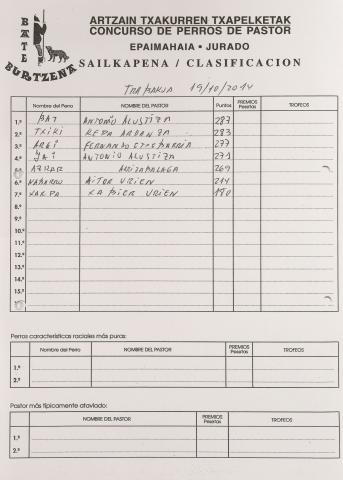 BATE
BURTZENA
ARTZAIN TXAKURREN TXAPELKETAK
CONCURSO DE PERROS DE PASTOR
EPAIMAHAIA • JURADO
SAILKAPENA / CLASIFICACION
19/10/2014
Nombre del Perro NOMBRE DEL PASTOR Puntos PREMIOS Pesetas TROFEOS
1.º BAT ANTONIO ALUSTIZA 287
2.º TXIKI KEPA 283
3.º ARGI FERNANDO 277
4.º JAI ANTONIO ALUSTIZA 271
5.º ARTZABALAGA 269
6.º AITOR URIEN 214
7.º XABIER URIEN 180
8.º
9.º
10.º
11.º
12.º
13.º
14.º
15.º
Perros características raciales más puras:
Nombre del Perro NOMBRE DEL PASTOR PREMIOS Pesetas TROFEOS
1.º
2.º
Pastor más típicamente ataviado:
NOMBRE DEL PASTOR PREMIOS Pesetas TROFEOS
1.º
2.º